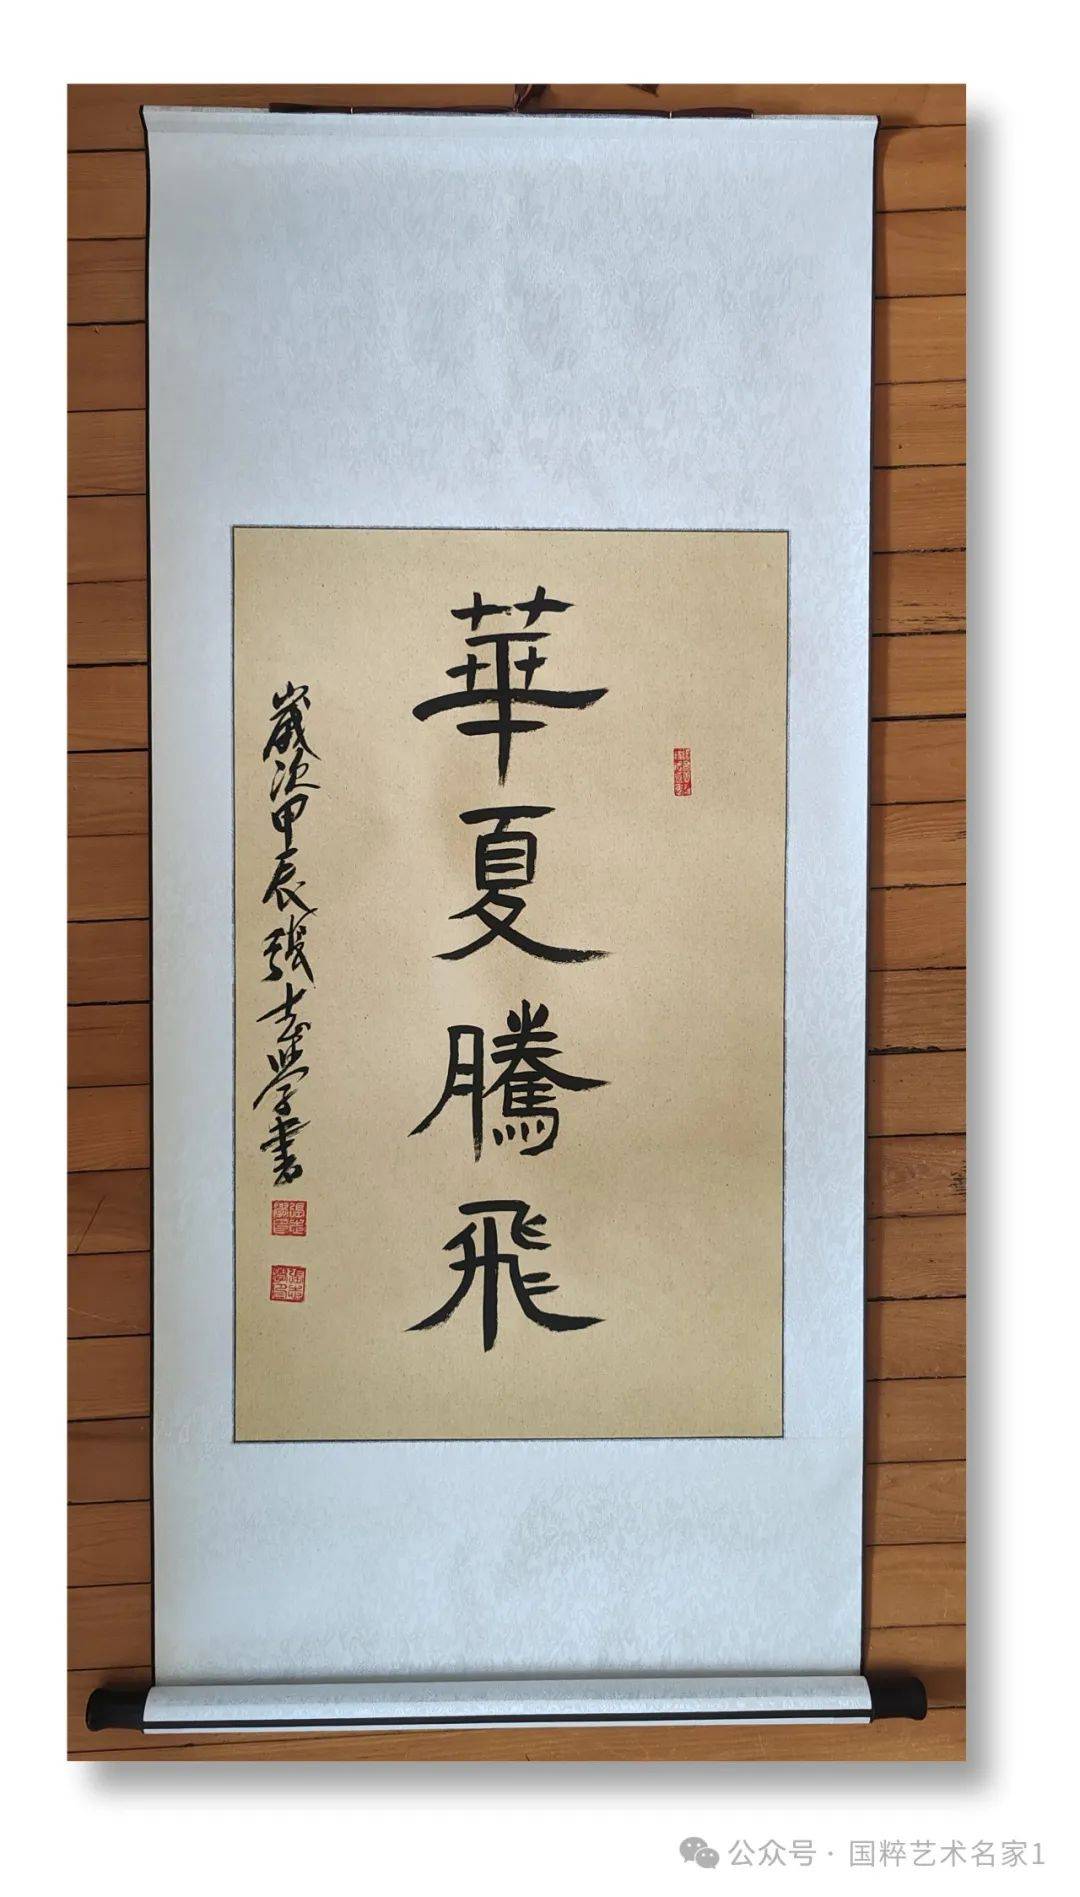 華夏騰飛
歲次甲辰張志學書
公众号 · 国粹艺术名家1